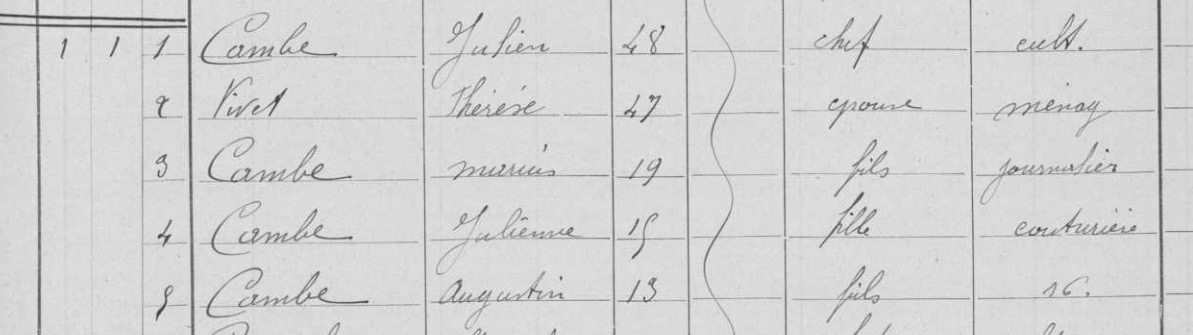 1 1 1 Cambe Julien 48 chef cult.
2 Vivet Thérèse 47 épouse ménag
3 Cambe marius 19 fils journalier
4 Cambe Julienne 15 fille couturière
5 Cambe Augustin 13 fils